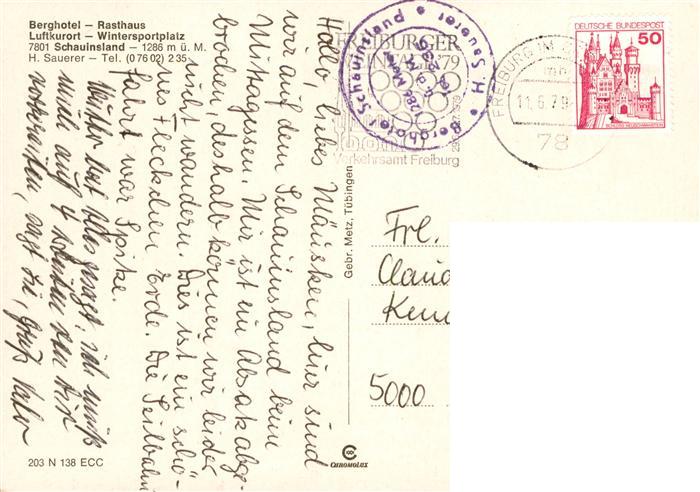 Berghotel – Rasthaus
Luftkurort – Wintersportplatz
7801 Schauinsland – 1286 m ü. M.
H. Sauerer – Tel. (0 76 02) 2 35
Hallo, liebes Mäuschen, hier sind
wir auf dem Schauinsland beim
Mittagessen. Mir ist ein Absatz abge-
brochen, deshalb können wir leider
nicht wandern. Dies ist ein schö-
nes Fleckchen Erde. Die Seilbahn-
fahrt war Spitze.
Mutter hat alles gesagt, ich muß
mich auf
vorbereiten, sagt sie, Gruß Vater
203 N 138 ECC
Gebr. Metz, Tübingen
CHROMOLUX
FREIBURGER
WEINTAGE 79
Verkehrsamt Freiburg
Berghotel Schauinsland
H. Sauerer
1286 Meter
FREIBURG IM
11.6.79
78
DEUTSCHE BUNDESPOST
50
Frl.
Claud
Kem
5000